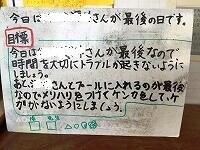 今日は さんが最後の日です。
目標
今日は さんが最後なので
時間を大切にトラブルが起きないように
しましょう。
あと さんとプールに入れるのが最後
なのでメリハリをつけてケンカをして、ケ
がないようにしましょう。